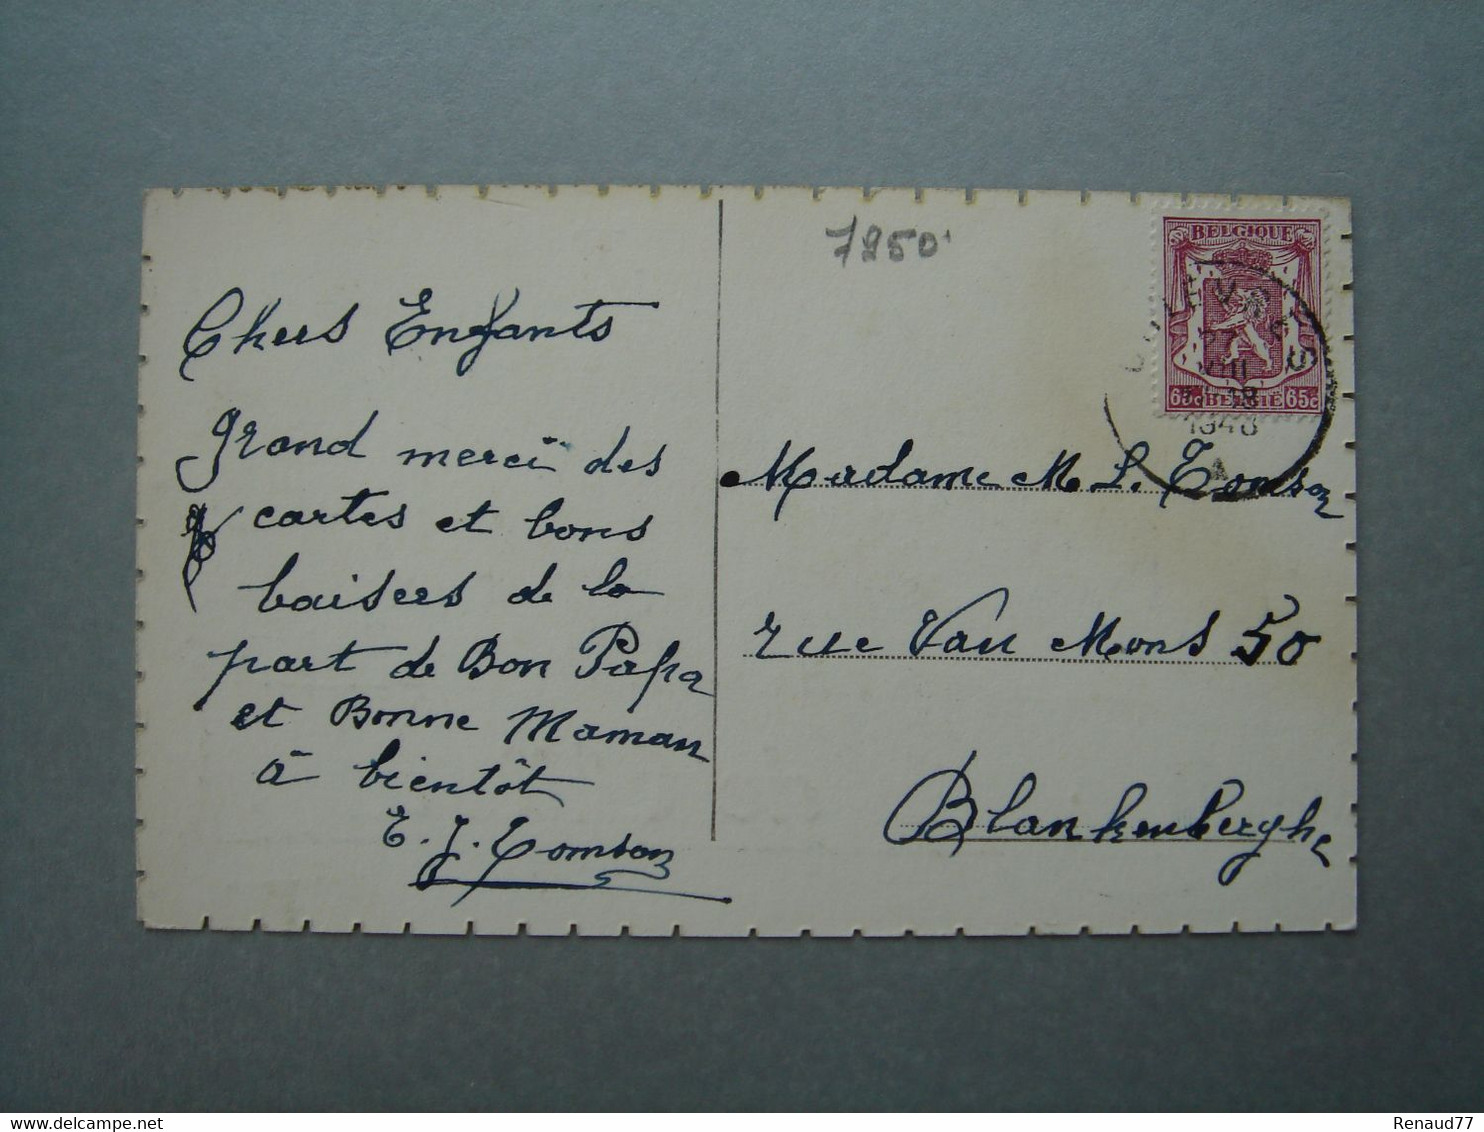 7850
BELGIQUE
65c BELGIE 65c
1948
A
Chers Enfants
grand merci des
cartes et bons
baisers de la
part de Bon Papa
et Bonne Maman
à bientôt
E. J. Tomson
Madame M. L. Tomson
rue Van Mons 50
Blankenberghe
delcampe.net
Renaud77